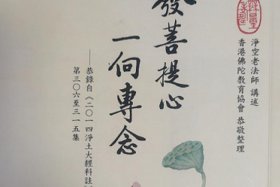 淨空老法師 講述
香港佛陀教育協會 恭敬整理
發菩提心
一向專念
——恭錄自《二〇一四淨土大經科註
第三〇六至三一五集